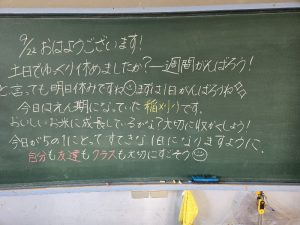 9/22 おはようございます!
土日でゆっくり休めましたか?一週間がんばろう!
と言っても明日休みですね☺まずは1日がんばろうね
今日はえん期になっていた稲刈りです。
おいしいお米に成長しているかな?大切に収かくしよう!
今日が5の1にとってすてきな1日になりますように。
自分も友達もクラスも大切にすごそう☺